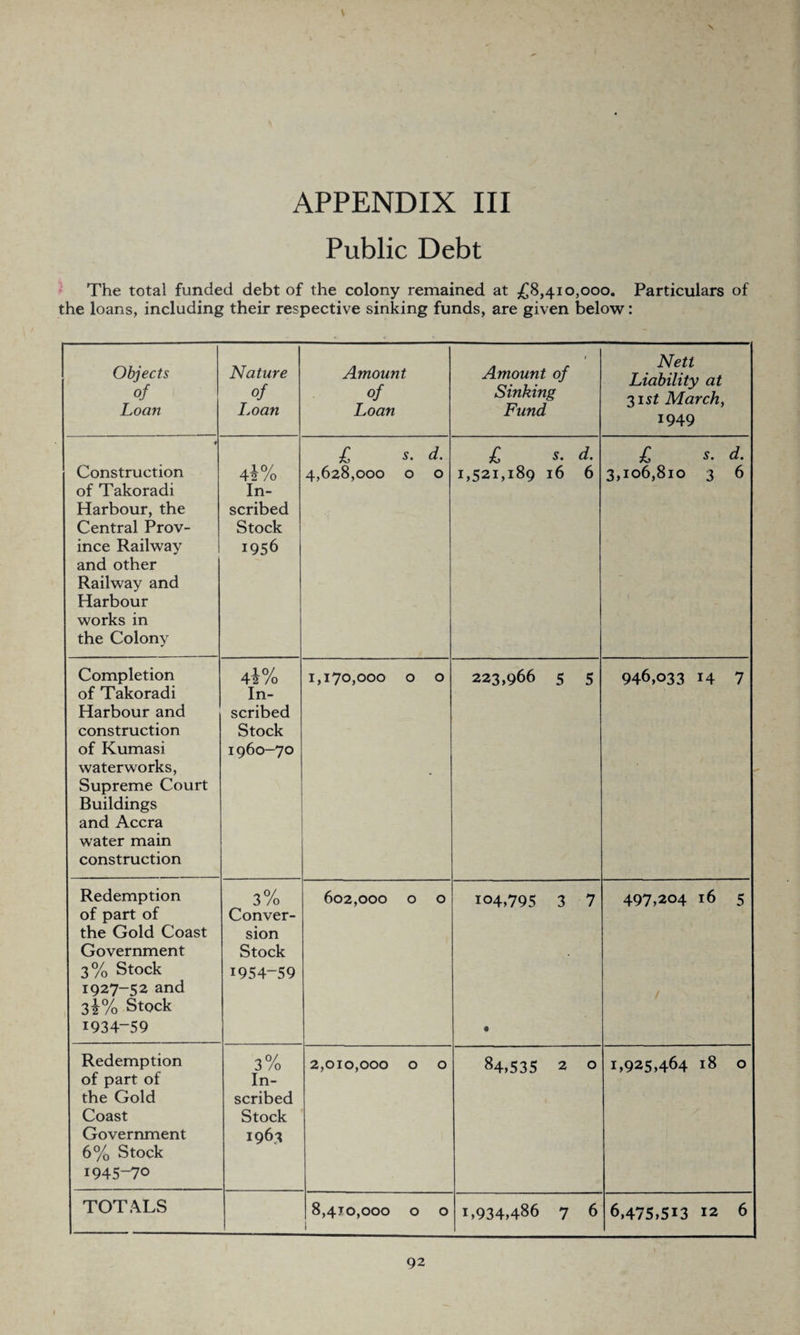 APPENDIX III
Public Debt
The total funded debt of the colony remained at £8,410,000. Particulars of
the loans, including their respective sinking funds, are given below:
Objects
of
Loan
Nature
of
Loan
Amount
of
Loan
Amount of
Sinking
Fund
Nett
Liability at
31st March,
1949
£ s. d.
£ s. d.
£ s. d.
Construction
of Takoradi
Harbour, the
Central Prov-
ince Railway
and other
Railway and
Harbour
works in
the Colony
4½%
In-
scribed
Stock
1956
4,628,000 0 0
1,521,189 16 6
3,106,810 3 6
Completion
of Takoradi
Harbour and
construction
of Kumasi
waterworks,
Supreme Court
Buildings
and Accra
water main
construction
4½%
In-
scribed
Stock
1960-70
1,170,000 0 0
223,966 5 5
946,033 14 7
Redemption
of part of
the Gold Coast
Government
3% Stock
1927-52 and
3½% Stock
1934-59
3%
Conver-
sion
Stock
1954-59
602,000 0 0
104,795 3 7
497,204 16 5
Redemption
of part of
the Gold
Coast
Government
6% Stock
1945-70
3%
In-
scribed
Stock
1963
2,010,000 0 0
84,535 2 0
1,925,464 18 0
TOTALS
8,410,000 0 0
1,934,486 7 6
6,475,513 12 6
92